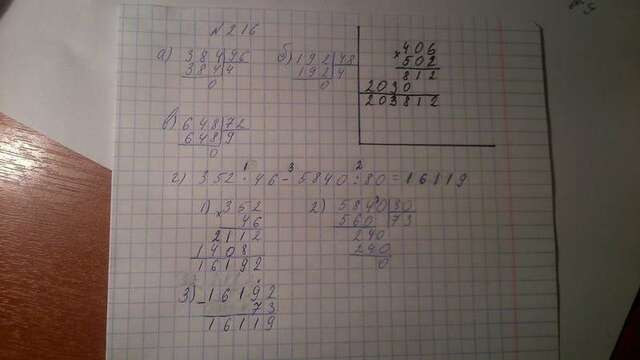 №216
а) 384 96
384 4
0
б) 192 48
192 4
0
406
× 502
812
2030
203812
в) 648 72
648 9
0
1 3 2
г) 352 · 46 - 5840 : 80 = 16119
1) × 352
46
2112
1408
16192
2) 5840 80
560 73
240
240
0
3) - 16192
73
16119